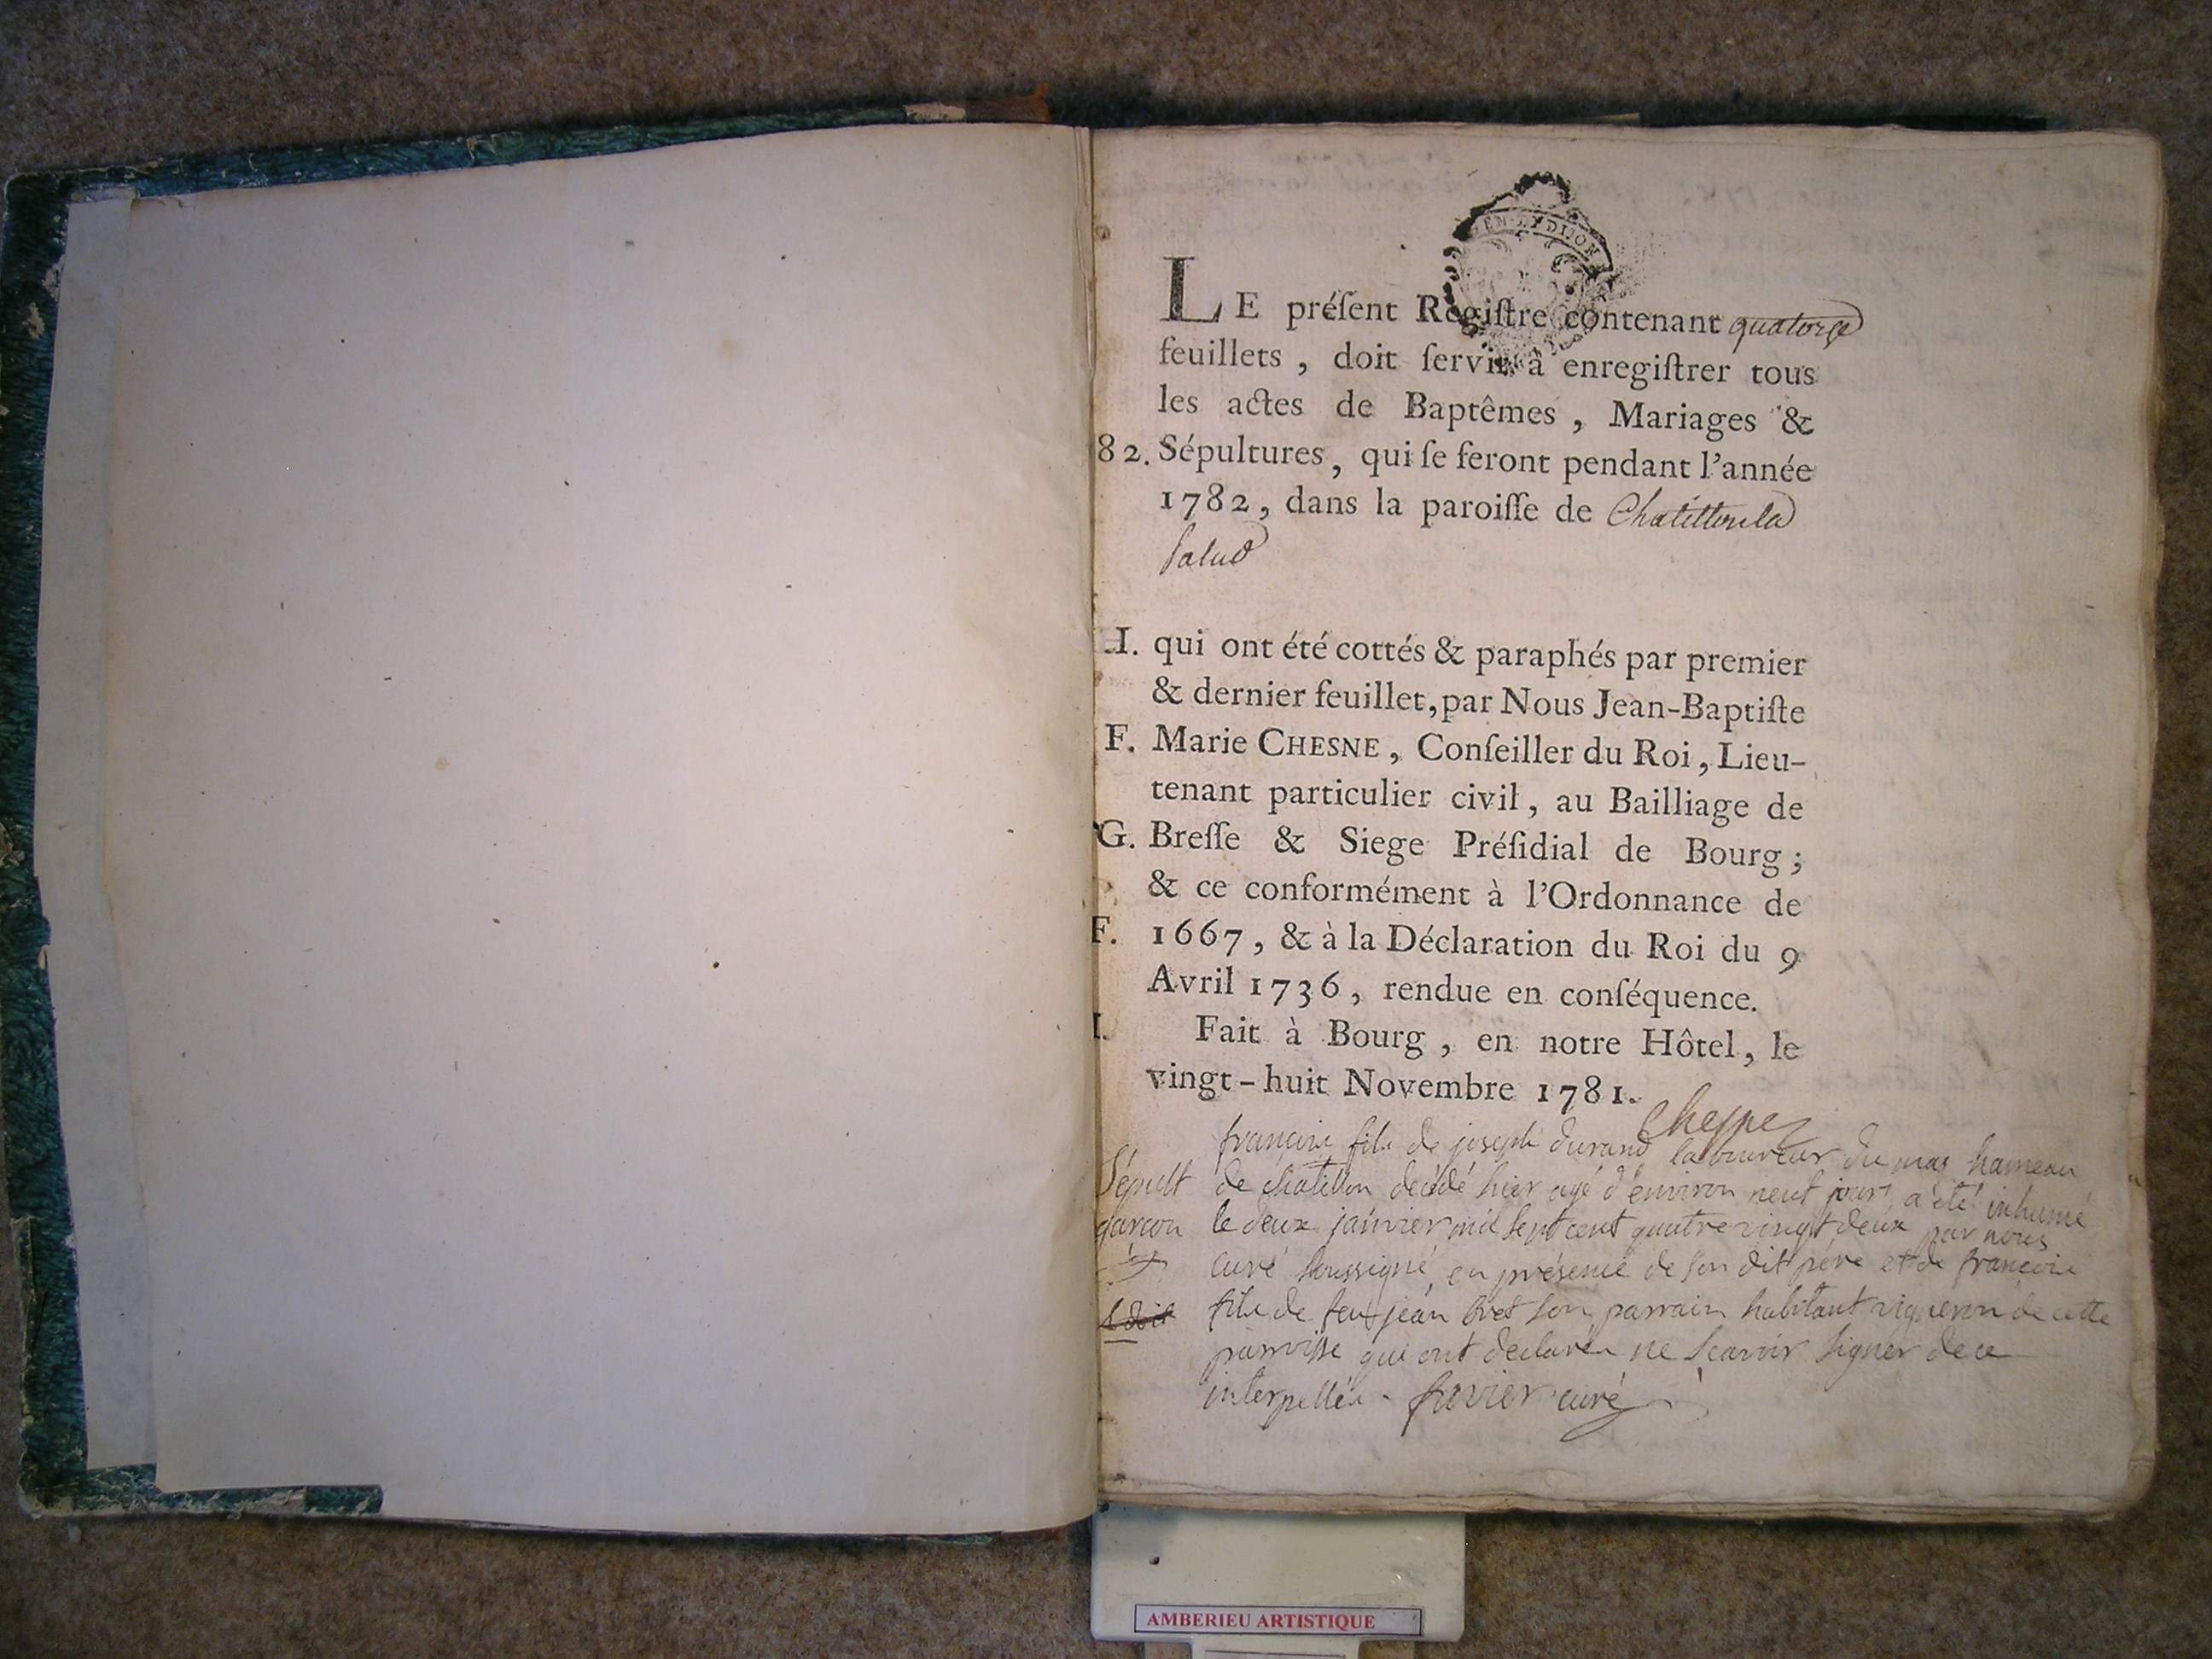 EN. ET DIJON
LE préſent Regiſtre contenant quatorze
feuillets, doit ſervir à enregiſtrer tous
les actes de Baptêmes, Mariages &
82. Sépultures, qui ſe feront pendant l'année
1782, dans la paroiſſe de Chatillon la
Palud
I. qui ont été cottés & paraphés par premier
& dernier feuillet, par Nous Jean-Baptiſte
F. Marie CHESNE, Conſeiller du Roi, Lieu-
tenant particulier civil, au Bailliage de
G. Breſſe & Siege Préſidial de Bourg;
& ce conformément à l'Ordonnance de
F. 1667, & à la Déclaration du Roi du 9
Avril 1736, rendue en conſéquence.
I. Fait à Bourg, en notre Hôtel, le
vingt-huit Novembre 1781.
Chesne
françois fils de joseph durand laboureur du mas hameau
Sépult de chatillon décédé hier agé d'environ neuf jours a été inhumé
garcon le deux janvier mil sept cent quatre vingt deux par nous
curé soussigné en présence de son dit père et de françois
fils de feu jean bret son parrain habitant vigneron de cette
parroisse qui ont declarés ne scavoir signer de ce
interpellés - favier curé
AMBERIEU ARTISTIQUE